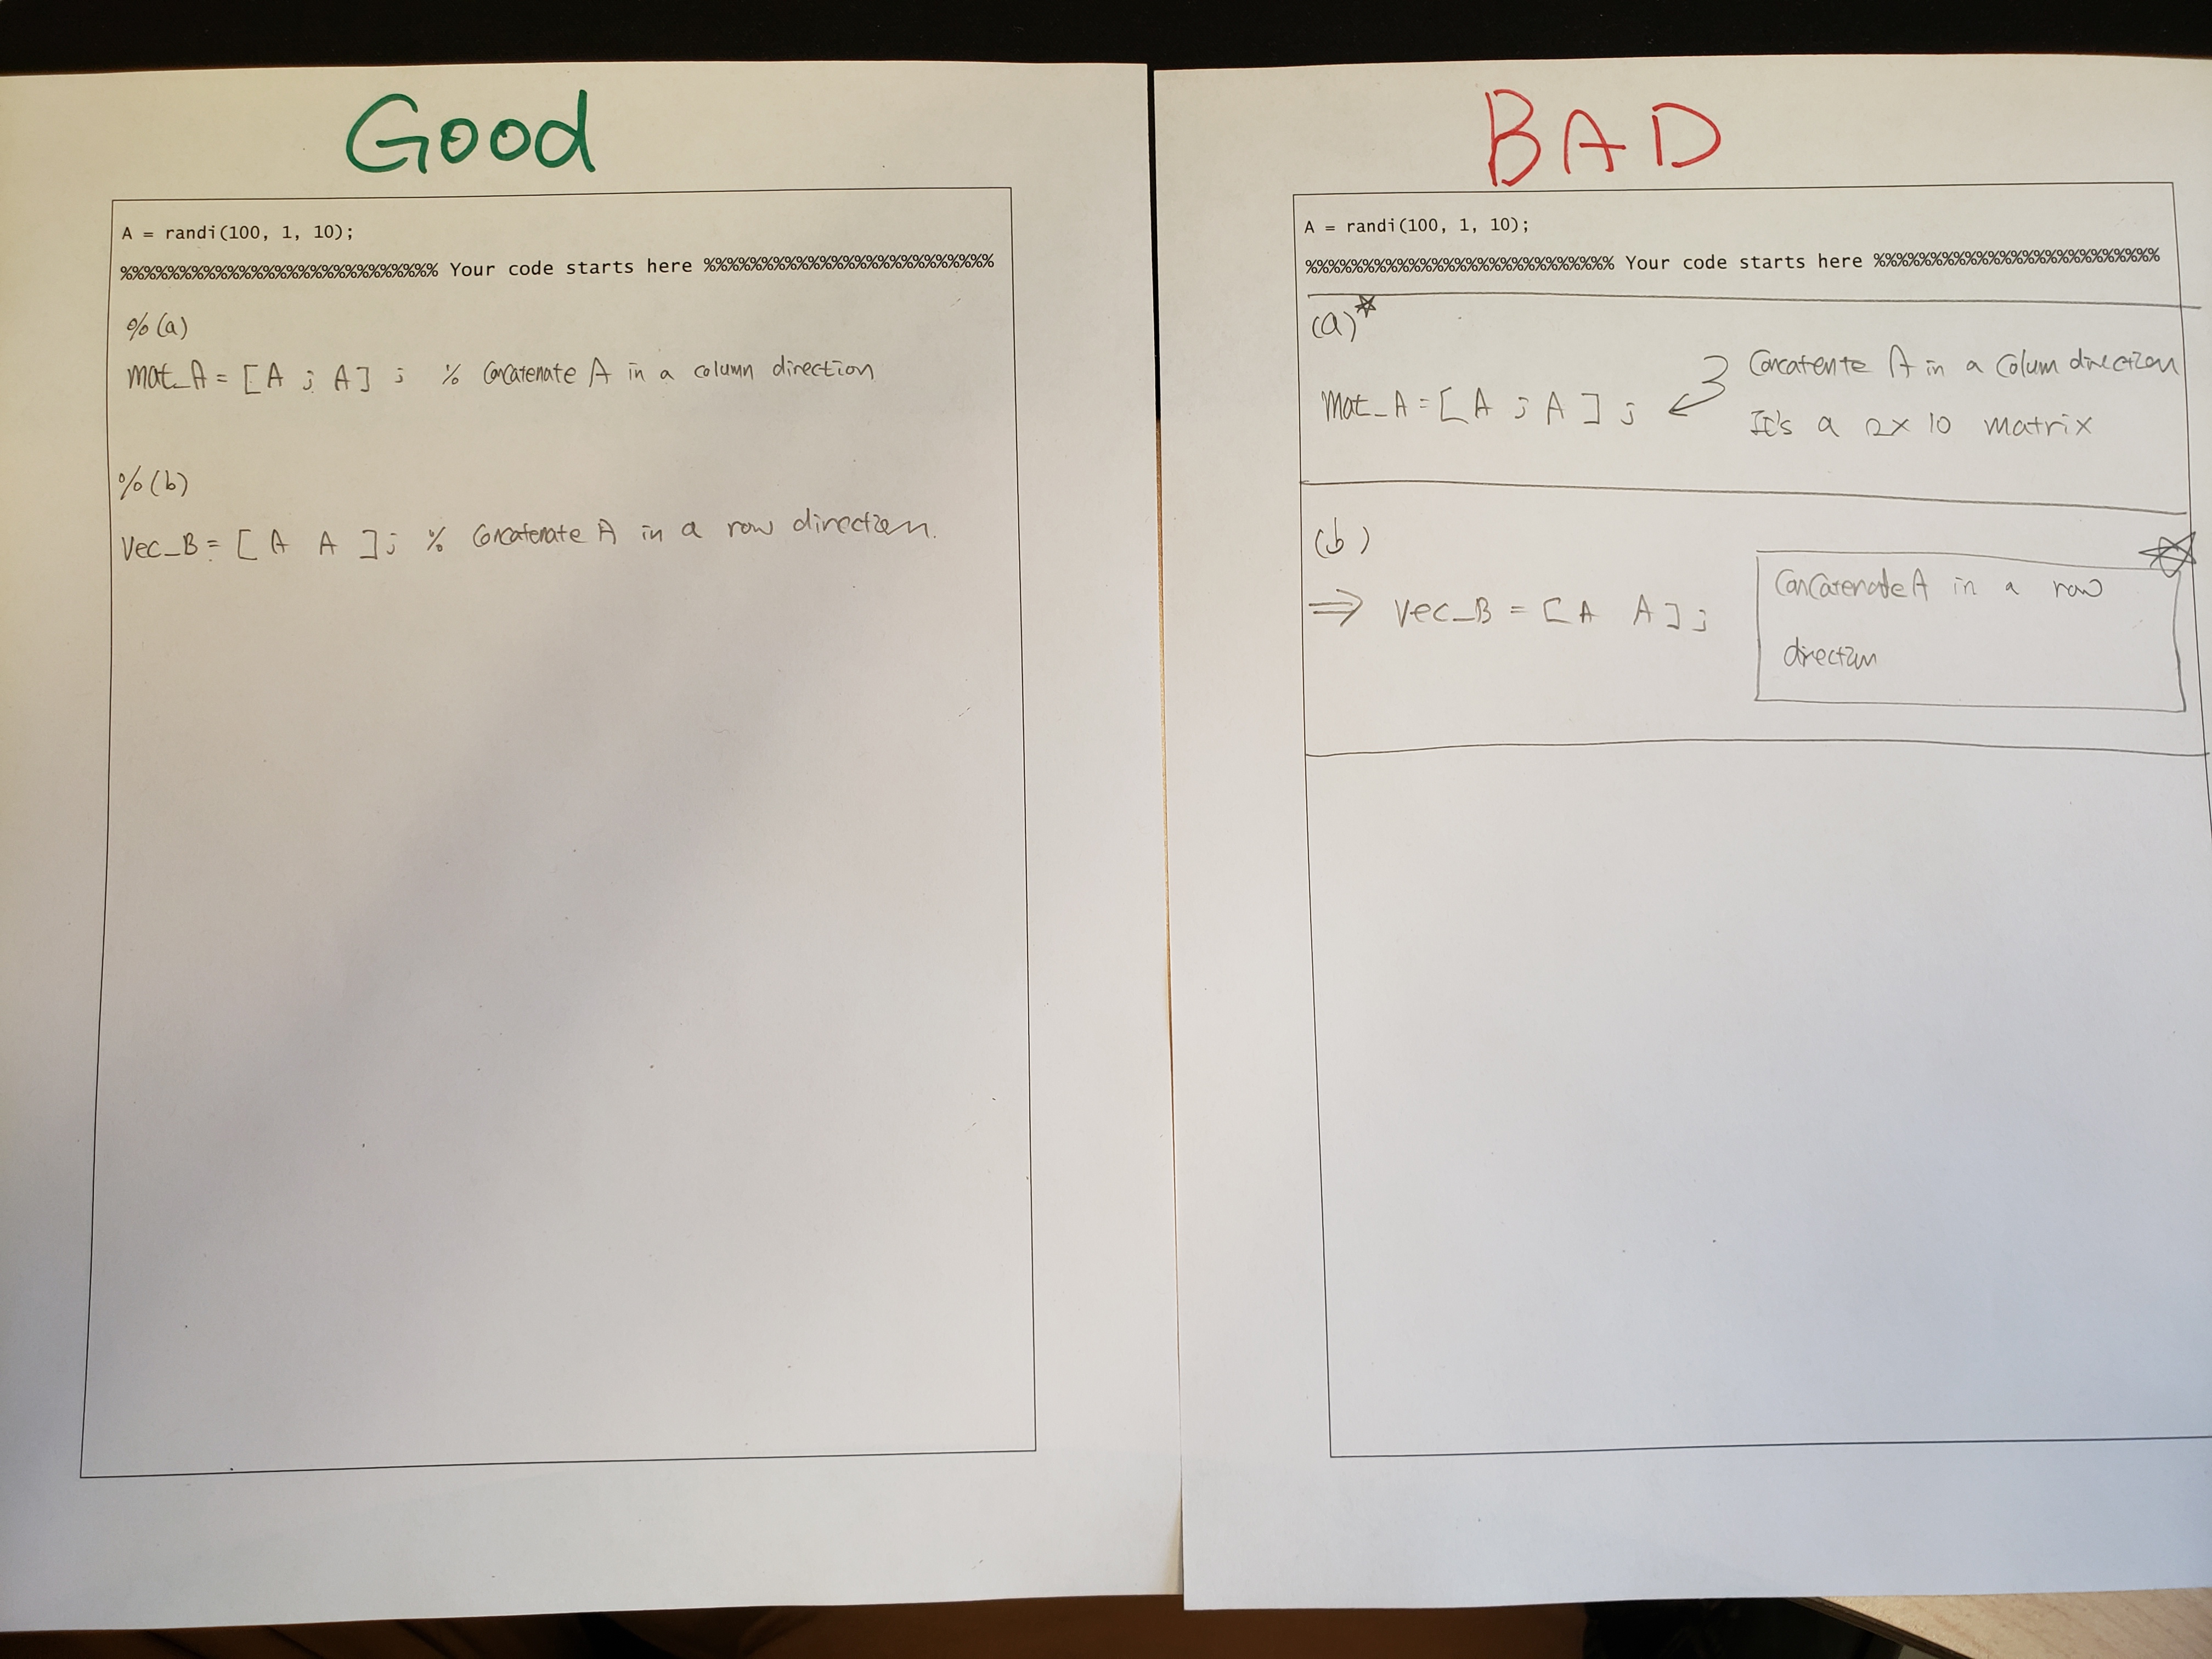 Good
A = randi(100, 1, 10);
%%%%%%%%%%%%%%%%%%%%%%%%%%% Your code starts here %%%%%%%%%%%%%%%%%%%%%%%%%
% (a)
mat_A = [A ; A] ; % Concatenate A in a column direction
% (b)
Vec_B = [ A A ]; % Concatenate A in a row direction.
BAD
A = randi(100, 1, 10);
%%%%%%%%%%%%%%%%%%%%%%%%%%% Your code starts here %%%%%%%%%%%%%%%%%%%%%%%%%
(a)
Concatente A in a Colum direction
Mat_A = [ A ; A ] ;
It's a 2x10 matrix
(b)
Concatenate A in a row
Vec_B = [ A A ] ;
direction